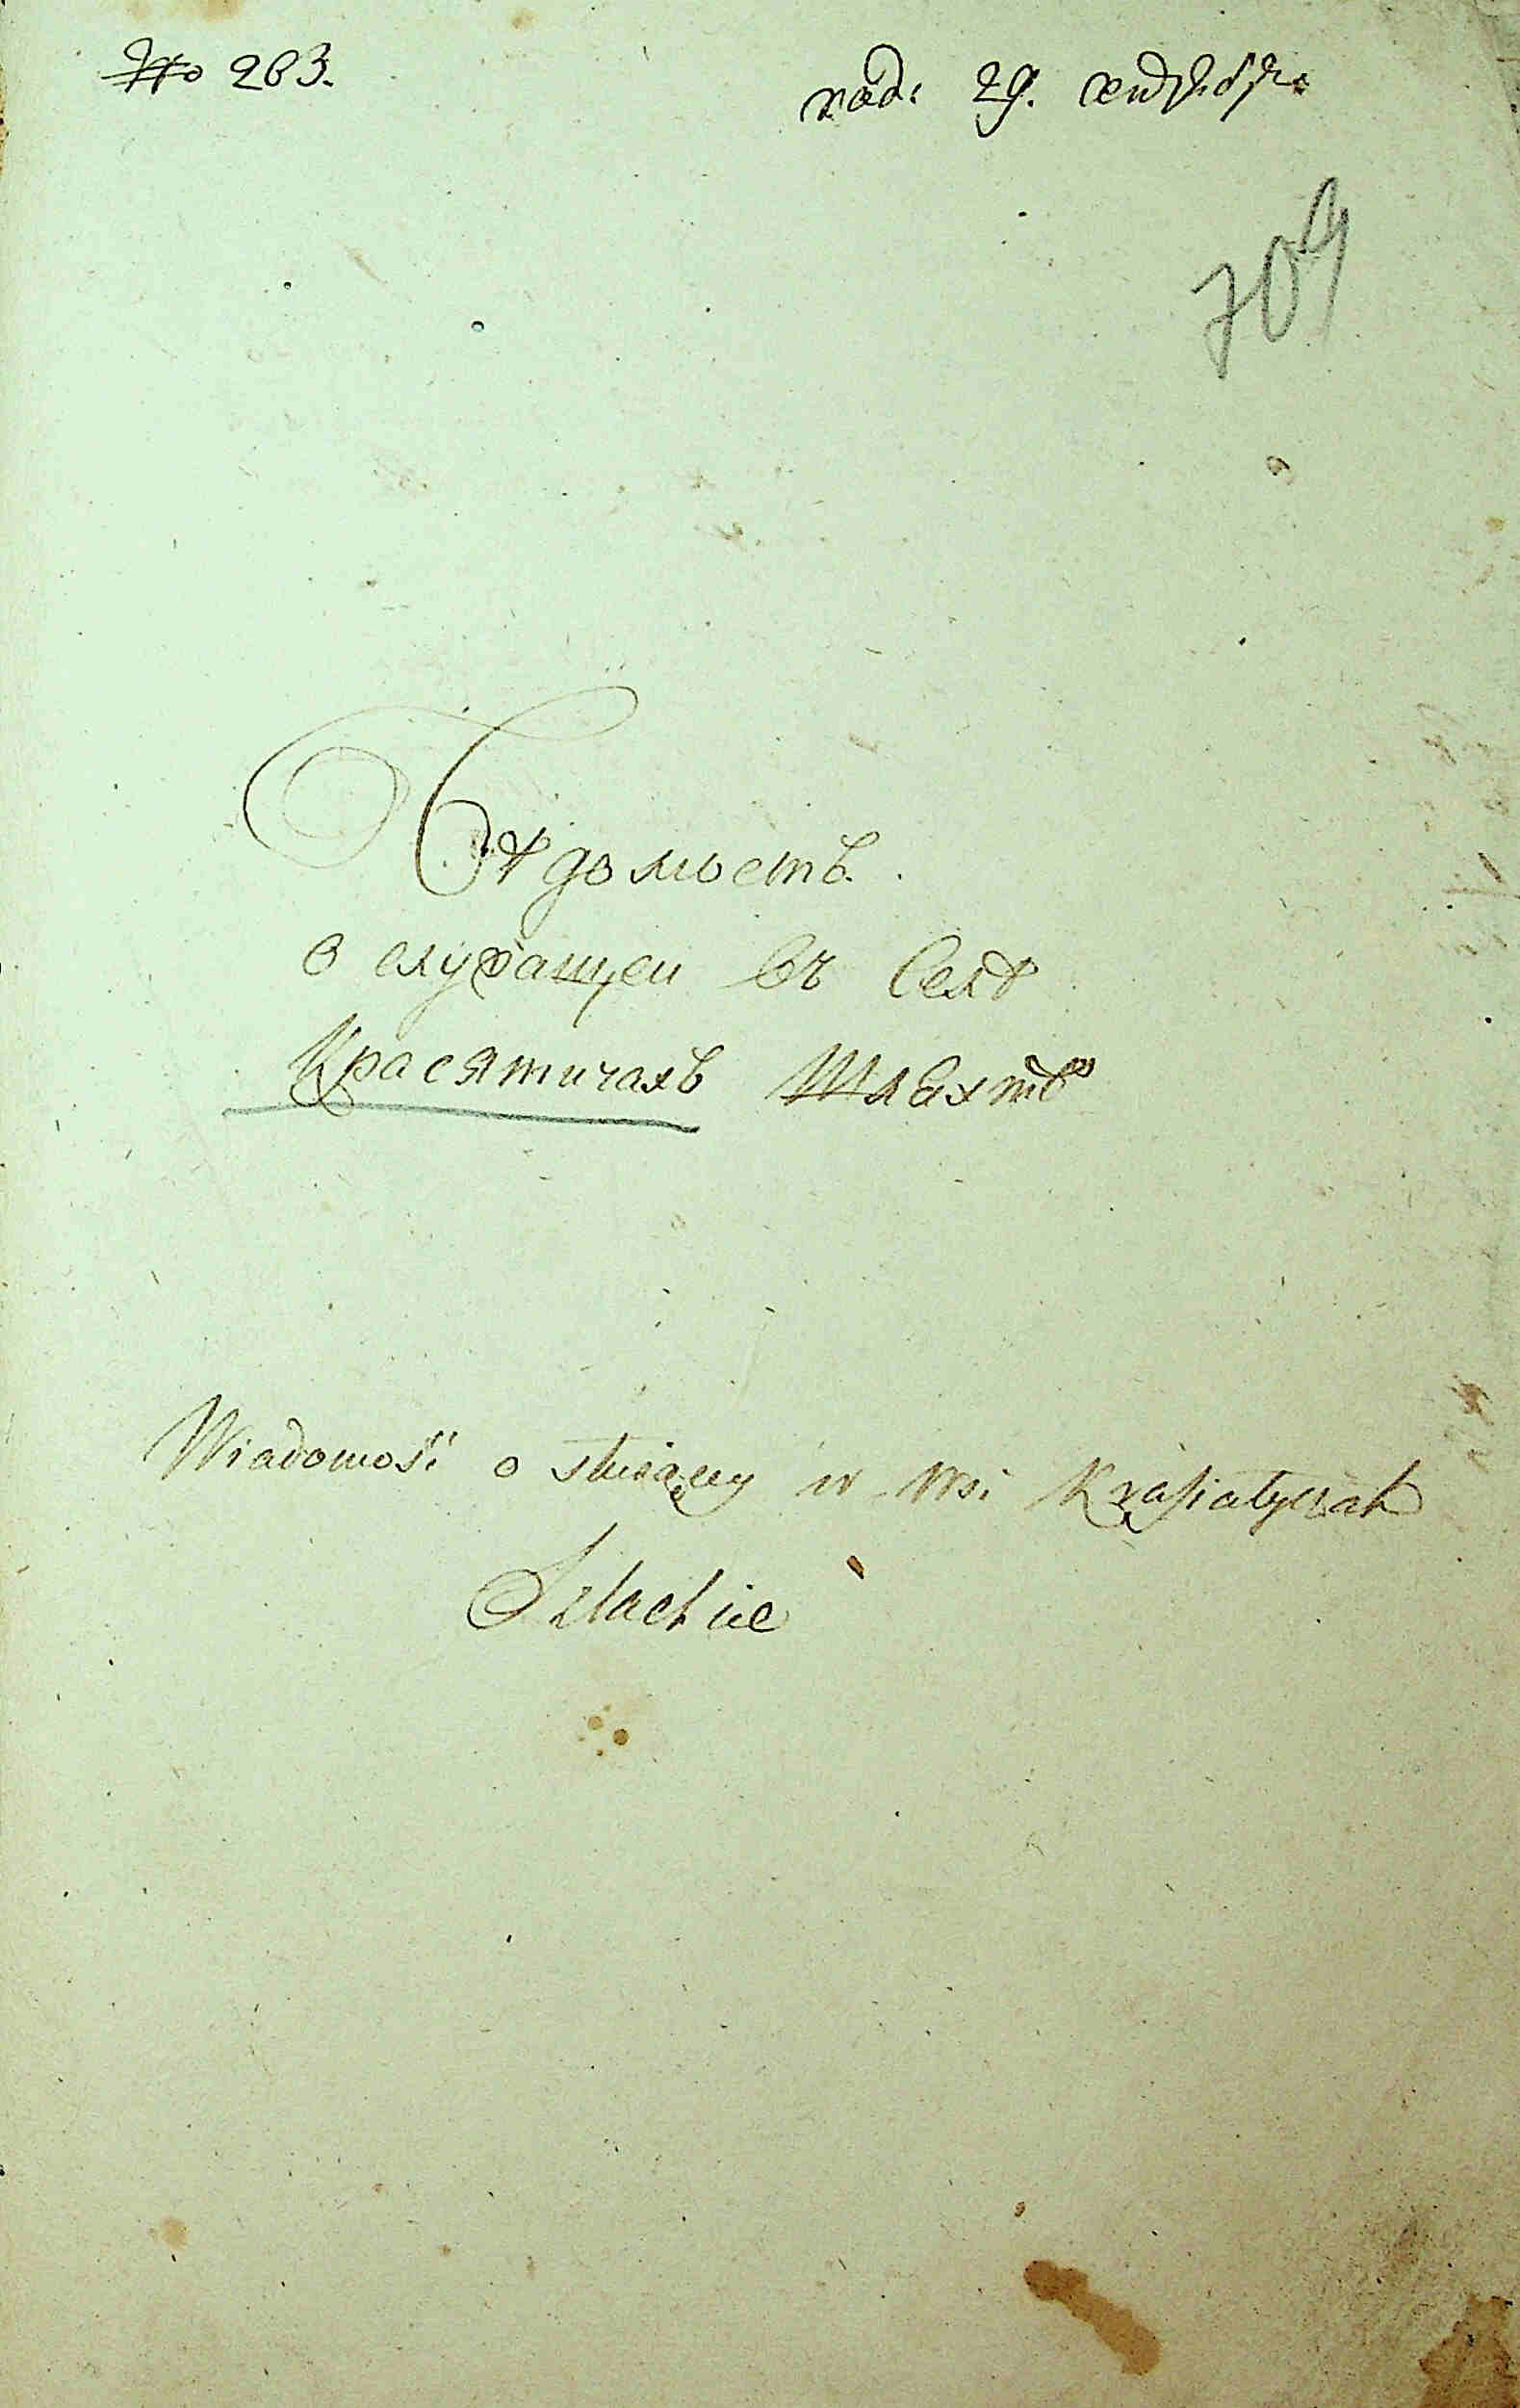 № 263.
29. сентября
709
Вѣдомость
о служащей въ Селѣ
Красятичахъ Шляхтѣ
Wiadomość o służącey w Wsi Krasiatyczach
Szlachcie